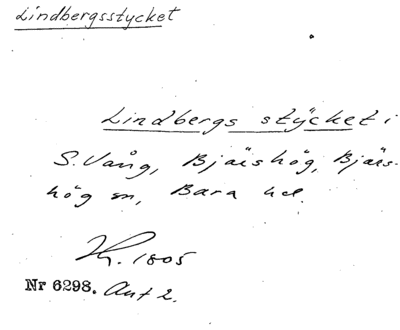 Lindbergsstycket
Lindbergs stÿcket i
S. Vång, Bjärshög, Bjärs-
hög sn, Bara hd.
Kh. 1805
Nr 6298. Akt 2.